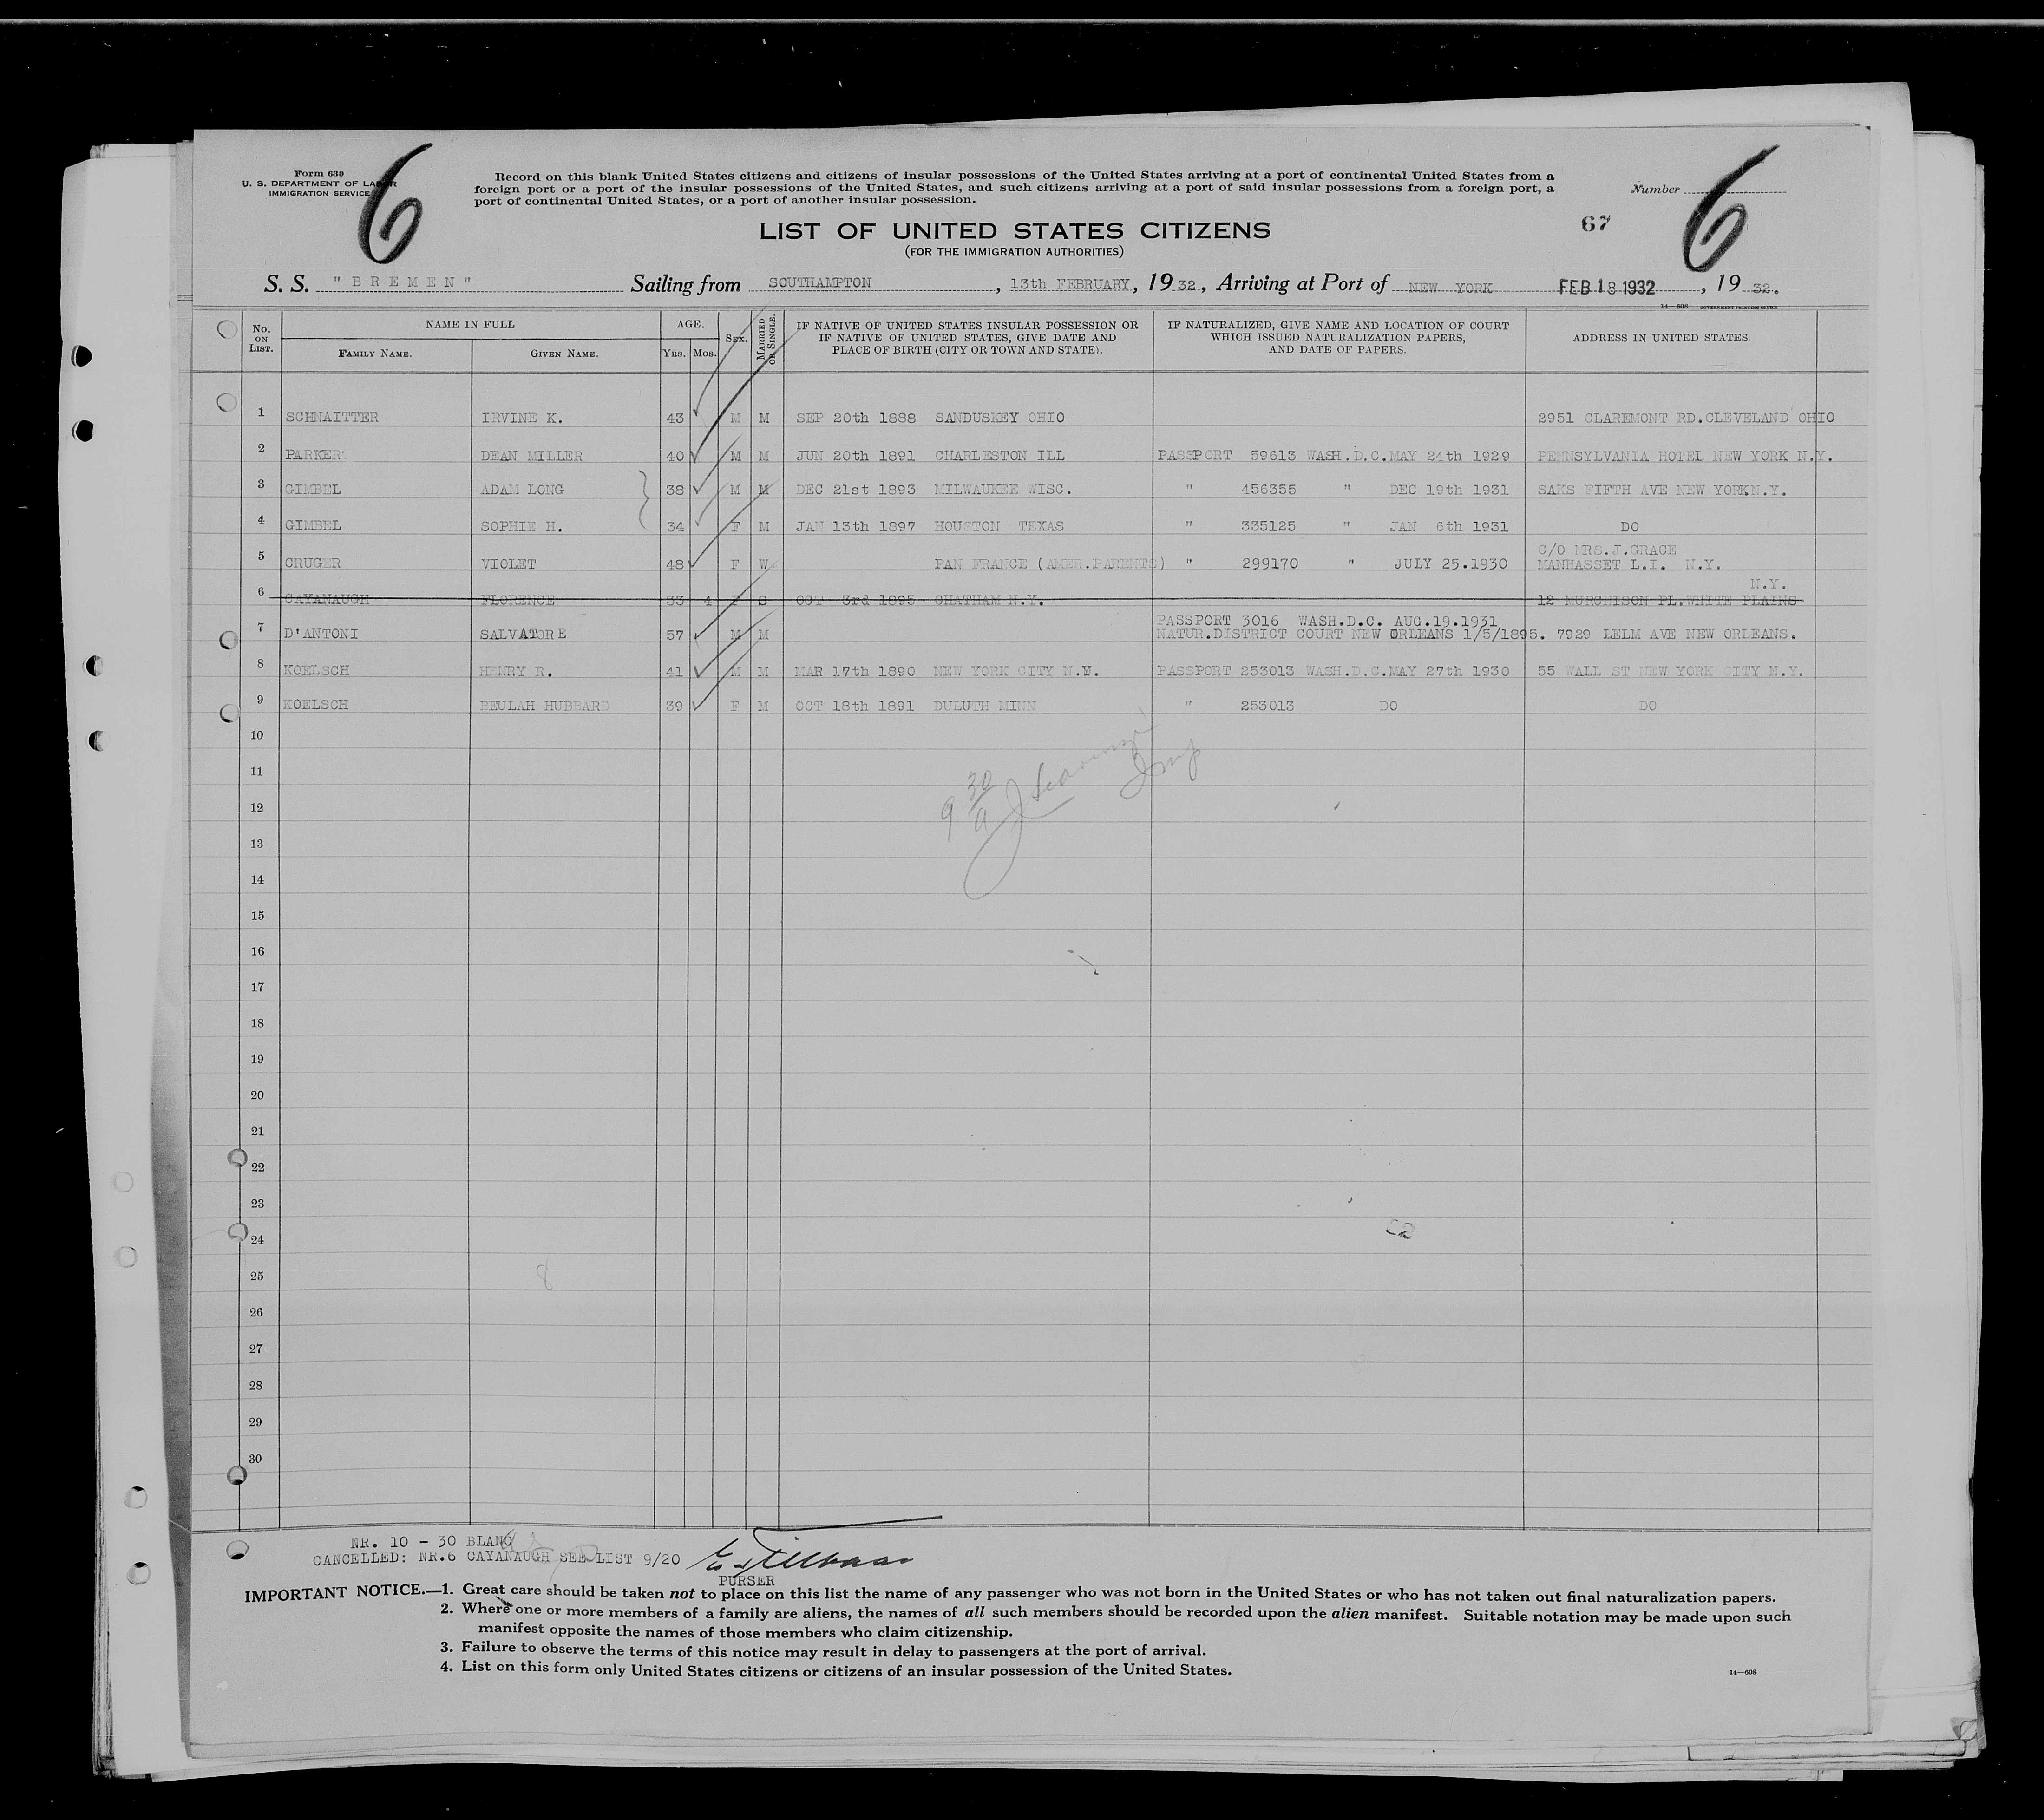 Form 639
U. S. DEPARTMENT OF LABOR
IMMIGRATION SERVICE
6
Record on this blank United States citizens and citizens of insular possessions of the United States arriving at a port of continental United States from a
foreign port or a port of the insular possessions of the United States, and such citizens arriving at a port of said insular possessions from a foreign port, a
port of continental United States, or a port of another insular possession.
Number
6
67
LIST OF UNITED STATES CITIZENS
(FOR THE IMMIGRATION AUTHORITIES)
S. S. "BREMEN" Sailing from SOUTHAMPTON, 13th FEBRUARY, 1932, Arriving at Port of NEW YORK FEB 18 1932, 1932.
14—608 GOVERNMENT PRINTING OFFICE
No. ON LIST. NAME IN FULL AGE. SEX. MARRIED OR SINGLE. IF NATIVE OF UNITED STATES INSULAR POSSESSION OR IF NATIVE OF UNITED STATES, GIVE DATE AND PLACE OF BIRTH (CITY OR TOWN AND STATE). IF NATURALIZED, GIVE NAME AND LOCATION OF COURT WHICH ISSUED NATURALIZATION PAPERS, AND DATE OF PAPERS. ADDRESS IN UNITED STATES.
FAMILY NAME. GIVEN NAME. YRS. MOS.
1 SCHNAITTER IRVINE K. 43 M M SEP 20th 1888 SANDUSKEY OHIO 2951 CLAREMONT RD.CLEVELAND OHIO
2 PARKER DEAN MILLER 40 M M JUN 20th 1891 CHARLESTON ILL PASSPORT 59613 WASH.D.C.MAY 24th 1929 PENNSYLVANIA HOTEL NEW YORK N.Y.
3 GIMBEL ADAM LONG 38 M M DEC 21st 1893 MILWAUKEE WISC. " 456355 " DEC 19th 1931 SAKS FIFTH AVE NEW YORKN.Y.
4 GIMBEL SOPHIE H. 34 F M JAN 13th 1897 HOUSTON TEXAS " 335125 " JAN 6th 1931 DO
C/O MRS.J.GRACE
5 CRUGER VIOLET 48 F W PAN FRANCE (AMER.PARENTS) " 299170 " JULY 25.1930 MANHASSET L.I. N.Y.
N.Y.
6 CAYANAUGH FLORENCE 33 4 F S OCT 3rd 1895 CHATHAM N.Y. 12 MURCHISON PL.WHITE PLAINS
PASSPORT 3016 WASH.D.C. AUG.19.1931
7 D'ANTONI SALVATORE 57 M M NATUR.DISTRICT COURT NEW ORLEANS 1/5/1895. 7929 LELM AVE NEW ORLEANS.
8 KOELSCH HENRY R. 41 M M MAR 17th 1890 NEW YORK CITY N.Y. PASSPORT 253013 WASH.D.C.MAY 27th 1930 55 WALL ST NEW YORK CITY N.Y.
9 KOELSCH BEULAH HUBBARD 39 F M OCT 18th 1891 DULUTH MINN " 253013 DO DO
10
11
9 30/a
12
13
14
15
16
17
18
19
20
21
22
23
24
25
26
27
28
29
30
NR. 10 - 30 BLANC
CANCELLED: NR.6 CAYANAUGH SEE LIST 9/20
PURSER
IMPORTANT NOTICE.—1. Great care should be taken not to place on this list the name of any passenger who was not born in the United States or who has not taken out final naturalization papers.
2. Where one or more members of a family are aliens, the names of all such members should be recorded upon the alien manifest. Suitable notation may be made upon such
manifest opposite the names of those members who claim citizenship.
3. Failure to observe the terms of this notice may result in delay to passengers at the port of arrival.
4. List on this form only United States citizens or citizens of an insular possession of the United States.
14—608